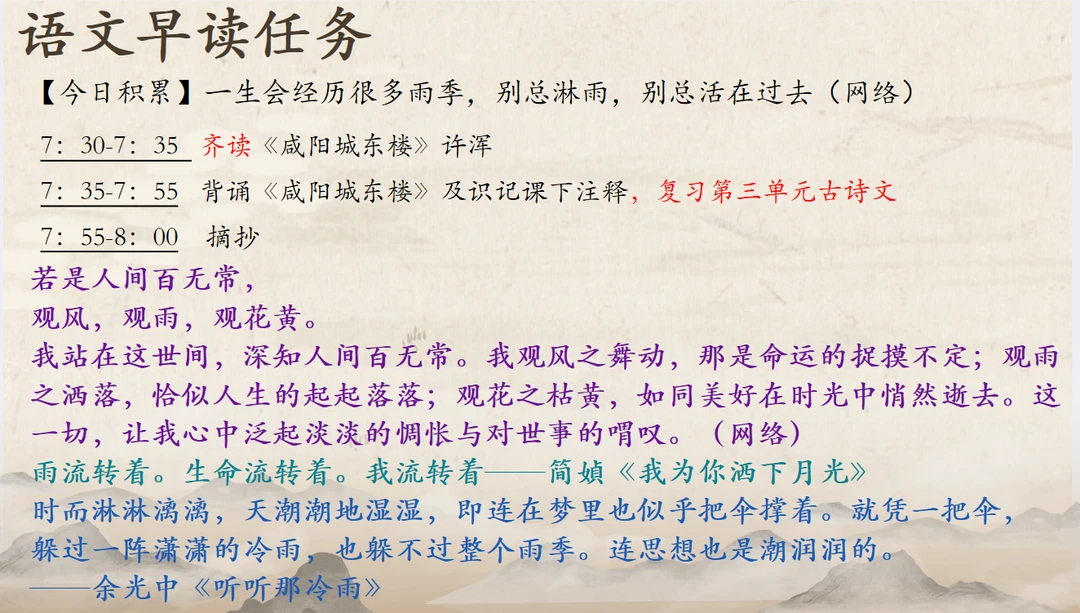 语文早读任务
【今日积累】一生会经历很多雨季，别总淋雨，别总活在过去（网络）
7：30-7：35 齐读《咸阳城东楼》许浑
7：35-7：55 背诵《咸阳城东楼》及识记课下注释，复习第三单元古诗文
7：55-8：00 摘抄
若是人间百无常，
观风，观雨，观花黄。
我站在这世间，深知人间百无常。我观风之舞动，那是命运的捉摸不定；观雨
之洒落，恰似人生的起起落落；观花之枯黄，如同美好在时光中悄然逝去。这
一切，让我心中泛起淡淡的惆怅与对世事的喟叹。（网络）
雨流转着。生命流转着。我流转着——简媜《我为你洒下月光》
时而淋淋漓漓，天潮潮地湿湿，即连在梦里也似乎把伞撑着。就凭一把伞，
躲过一阵潇潇的冷雨，也躲不过整个雨季。连思想也是潮润润的。
——余光中《听听那冷雨》